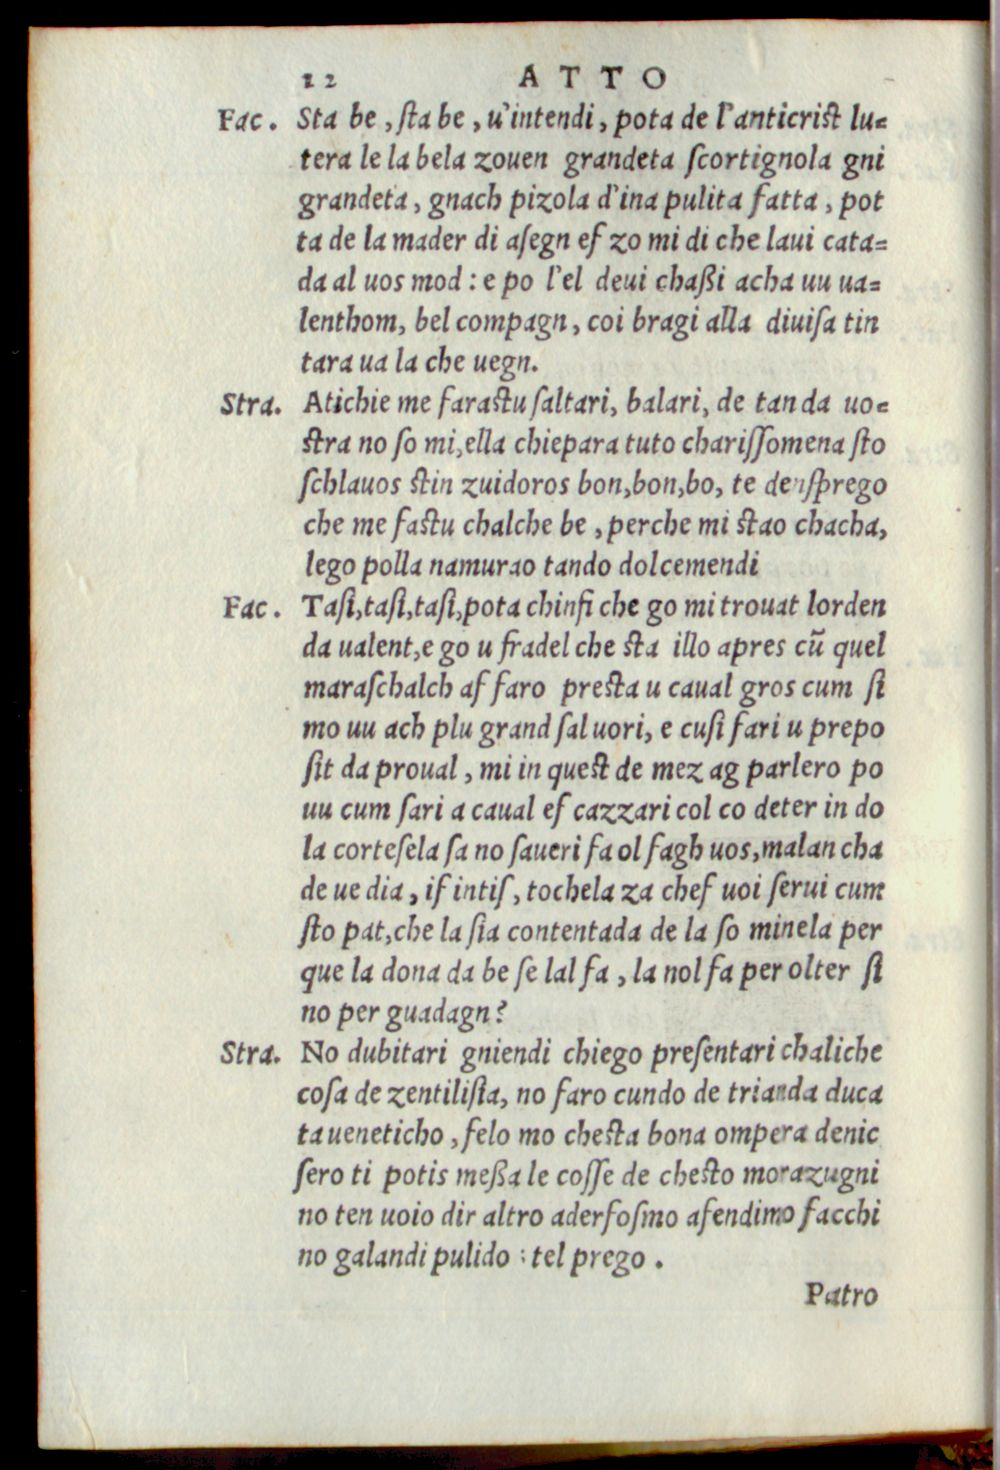 12 ATTO
Fac. Sta be, sta be, u'intendi, pota de l'anticrist lu=
tera le la bela zouen grandeta scortignola gni
grandeta, gnach pizola d'ina pulita fatta, pot
ta de la mader di asegn ef zo mi di che laui cata=
da al uos mod: e po l'el deui chaßi acha uu ua=
lenthom, bel compagn, coi bragi alla diuisa tin
tara ua la che uegn.
Stra. Atichie me farastu saltari, balari, de tan da uo=
stra no so mi, ella chiepara tuto charissomena sto
schlauos stin zuidoros bon, bon, bo, te densprego
che me fastu chalche be, perche mi stao chacha,
lego polla namurao tando dolcemendi
Fac. Tasi, tasi, tasi, pota chinfi che go mi trouat lorden
da ualent, e go u fradel che sta illo apres cū quel
maraschalch af faro presta u caual gros cum si
mo uu ach plu grand sal uori, e cusi fari u prepo
sit da proual, mi in quest de mez ag parlero po
uu cum sari a caual ef cazzari col co deter in do
la cortesela sa no saueri fa ol fagh uos, malan cha
de ue dia, if intis, tochela za chef uoi serui cum
sto pat, che la sia contentada de la so minela per
que la dona da be se lal fa, la nol fa per olter si
no per guadagn?
Stra. No dubitari gniendi chiego presentari chaliche
cosa de zentilisia, no faro cundo de trianda duca
ta ueneticho, felo mo chesta bona ompera denic
sero ti potis meßa le cosse de chesto morazugni
no ten uoio dir altro aderfosmo afendimo facchi
no galandi pulido : tel prego.
Patro